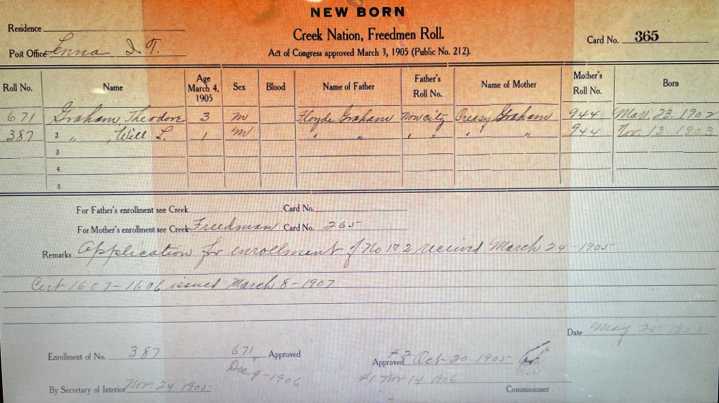 NEW BORN
Creek Nation, Freedmen Roll.
Act of Congress approved March 3, 1905 (Public No. 212).
Residence
Post Office Lenna I. T.
Card No. 365
Roll No. Name Age March 4, 1905 Sex Blood Name of Father Father's Roll No. Name of Mother Mother's Roll No. Born
671 Graham, Theodore 3 M Floyde Graham Non city Creasy Graham 944 Mar. 23. 1902
387 2 " , Will L. 1 M " " " " " 944 Nov. 12 1903
3
4
5
For Father's enrollment see Creek Card No.
For Mother's enrollment see Creek Freedman Card No. 265
Remarks Application for enrollment of No 1&2 received March 24-1905
Cert 1607-1606 issued March 8-1907
Date May 1905
Enrollment of No. 387 671 Approved Approved #2 Oct-20 1905
Dec 9-1906 #1 Nov 14 1906
By Secretary of Interior Nov 24 1905 Commissioner